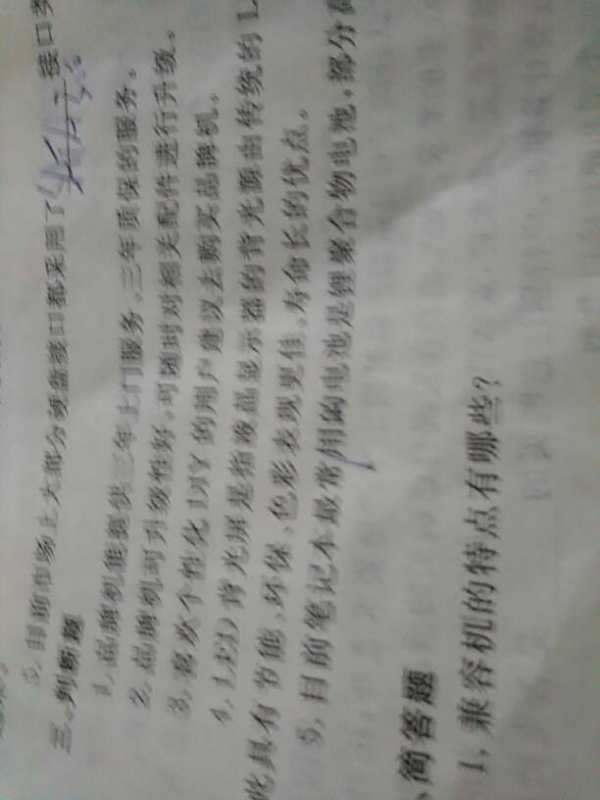 5. 目前市场上大部分硬盘接口都采用了 接口类
三、判断题
1. 品牌机能提供三年上门服务、三年质保的服务。
2. 品牌机可升级性好,可随时对相关配件进行升级。
3. 喜欢个性化DIY的用户建议去购买品牌机。
4. LED背光屏是指液晶显示器的背光源由传统的
此具有节能、环保、色彩表现更佳、寿命长的优点。
5. 目前笔记本最常用的电池是锂聚合物电池,部分
、简答题
1. 兼容机的特点有哪些?